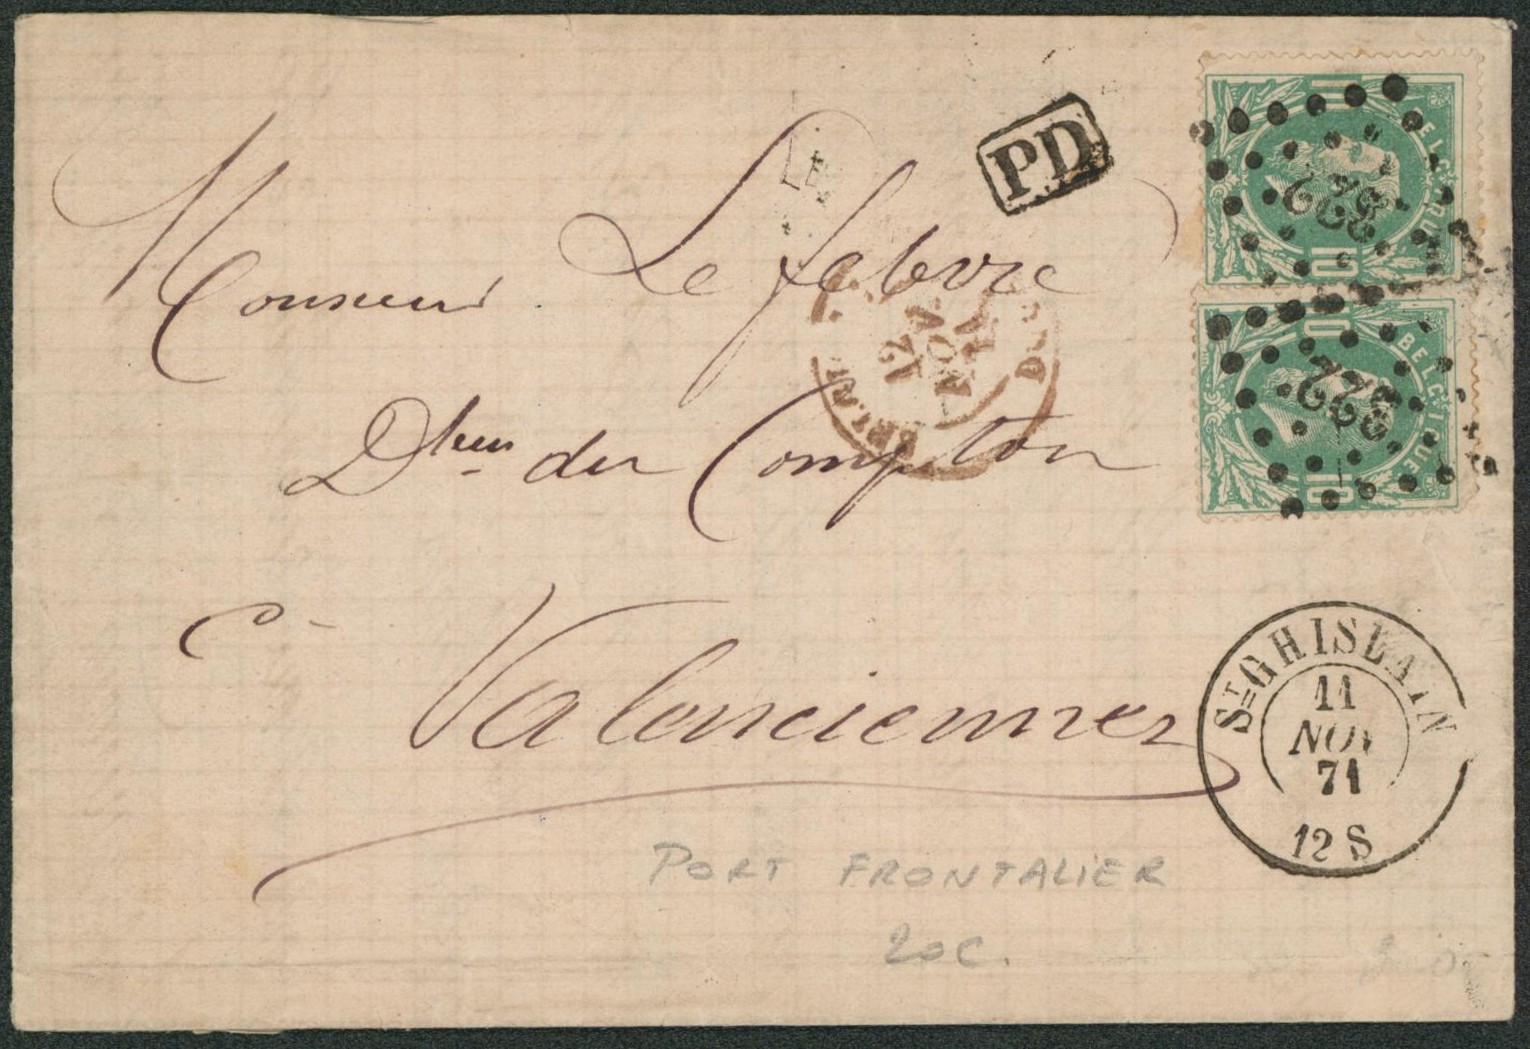 PD
10
BELGIQUE
322
10
10
BELGIQUE
322
10
Monsieur Lefebvre
12
NOV
71
Dteur du Comptoir
Valenciennes
ST GHISLAIN
11
NOV
71
12 S
PORT FRONTALIER
20C.